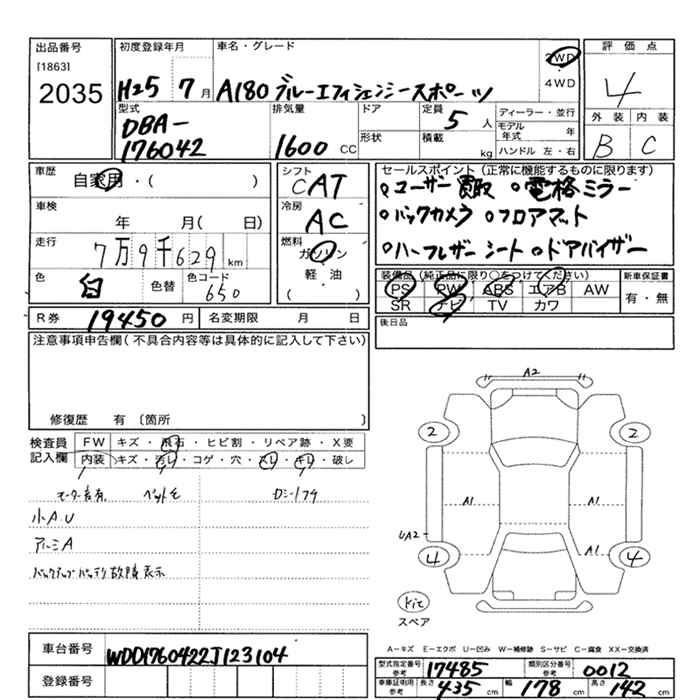 出品番号 初度登録年月 車名・グレード 評価点
[1863]
2035 H25 7月 A180 ブルーエフィシェンシースポーツ 2WD 4WD 4
型式 排気量 ドア 定員 ディーラー・並行 外装 内装
DBA-
176042 1600 CC 形状 5人 積載 kg モデル年式 年 ハンドル 左・右 B C
車歴 自家用・( ) シフト CAT セールスポイント(正常に機能するものに限ります)
ユーザー買取 電格ミラー
車検 年 月( 日) 冷房 AC バックカメラ フロアマット
走行 7万9千629km 燃料 ガソリン ハーフレザーシート ドアバイザー
色 白 色替 色コード 650 軽・油 ( ・ )
装備品(純正品に限り○をつけてください) 新車保証書
PS PW ABS エアB AW 有・無
SR ナビ TV カワ
R券 19450円 名変期限 月 日 後日品
注意事項申告欄(不具合内容等は具体的に記入して下さい)
修復歴 有〔箇所 〕
検査員記入欄 FW キズ・飛石・ヒビ割・リペア跡・X要
内装 キズ・汚レ・コゲ・穴・スレ・キレ・破レ
小AU
アルミA
バックアップバッテリ故障表示
A2
2 2
A1 A1
UA2
A1
4 4
Kit
スペア
A-キズ E-エクボ U-凹み W-補修跡 S-サビ C-腐食 XX-交換済
車台番号 WDD1760422J123104
登録番号
型式指定番号 参考 17485 類別区分番号 参考 0012
車庫証明用 参考 長さ 435cm 幅 178cm 高さ 142cm